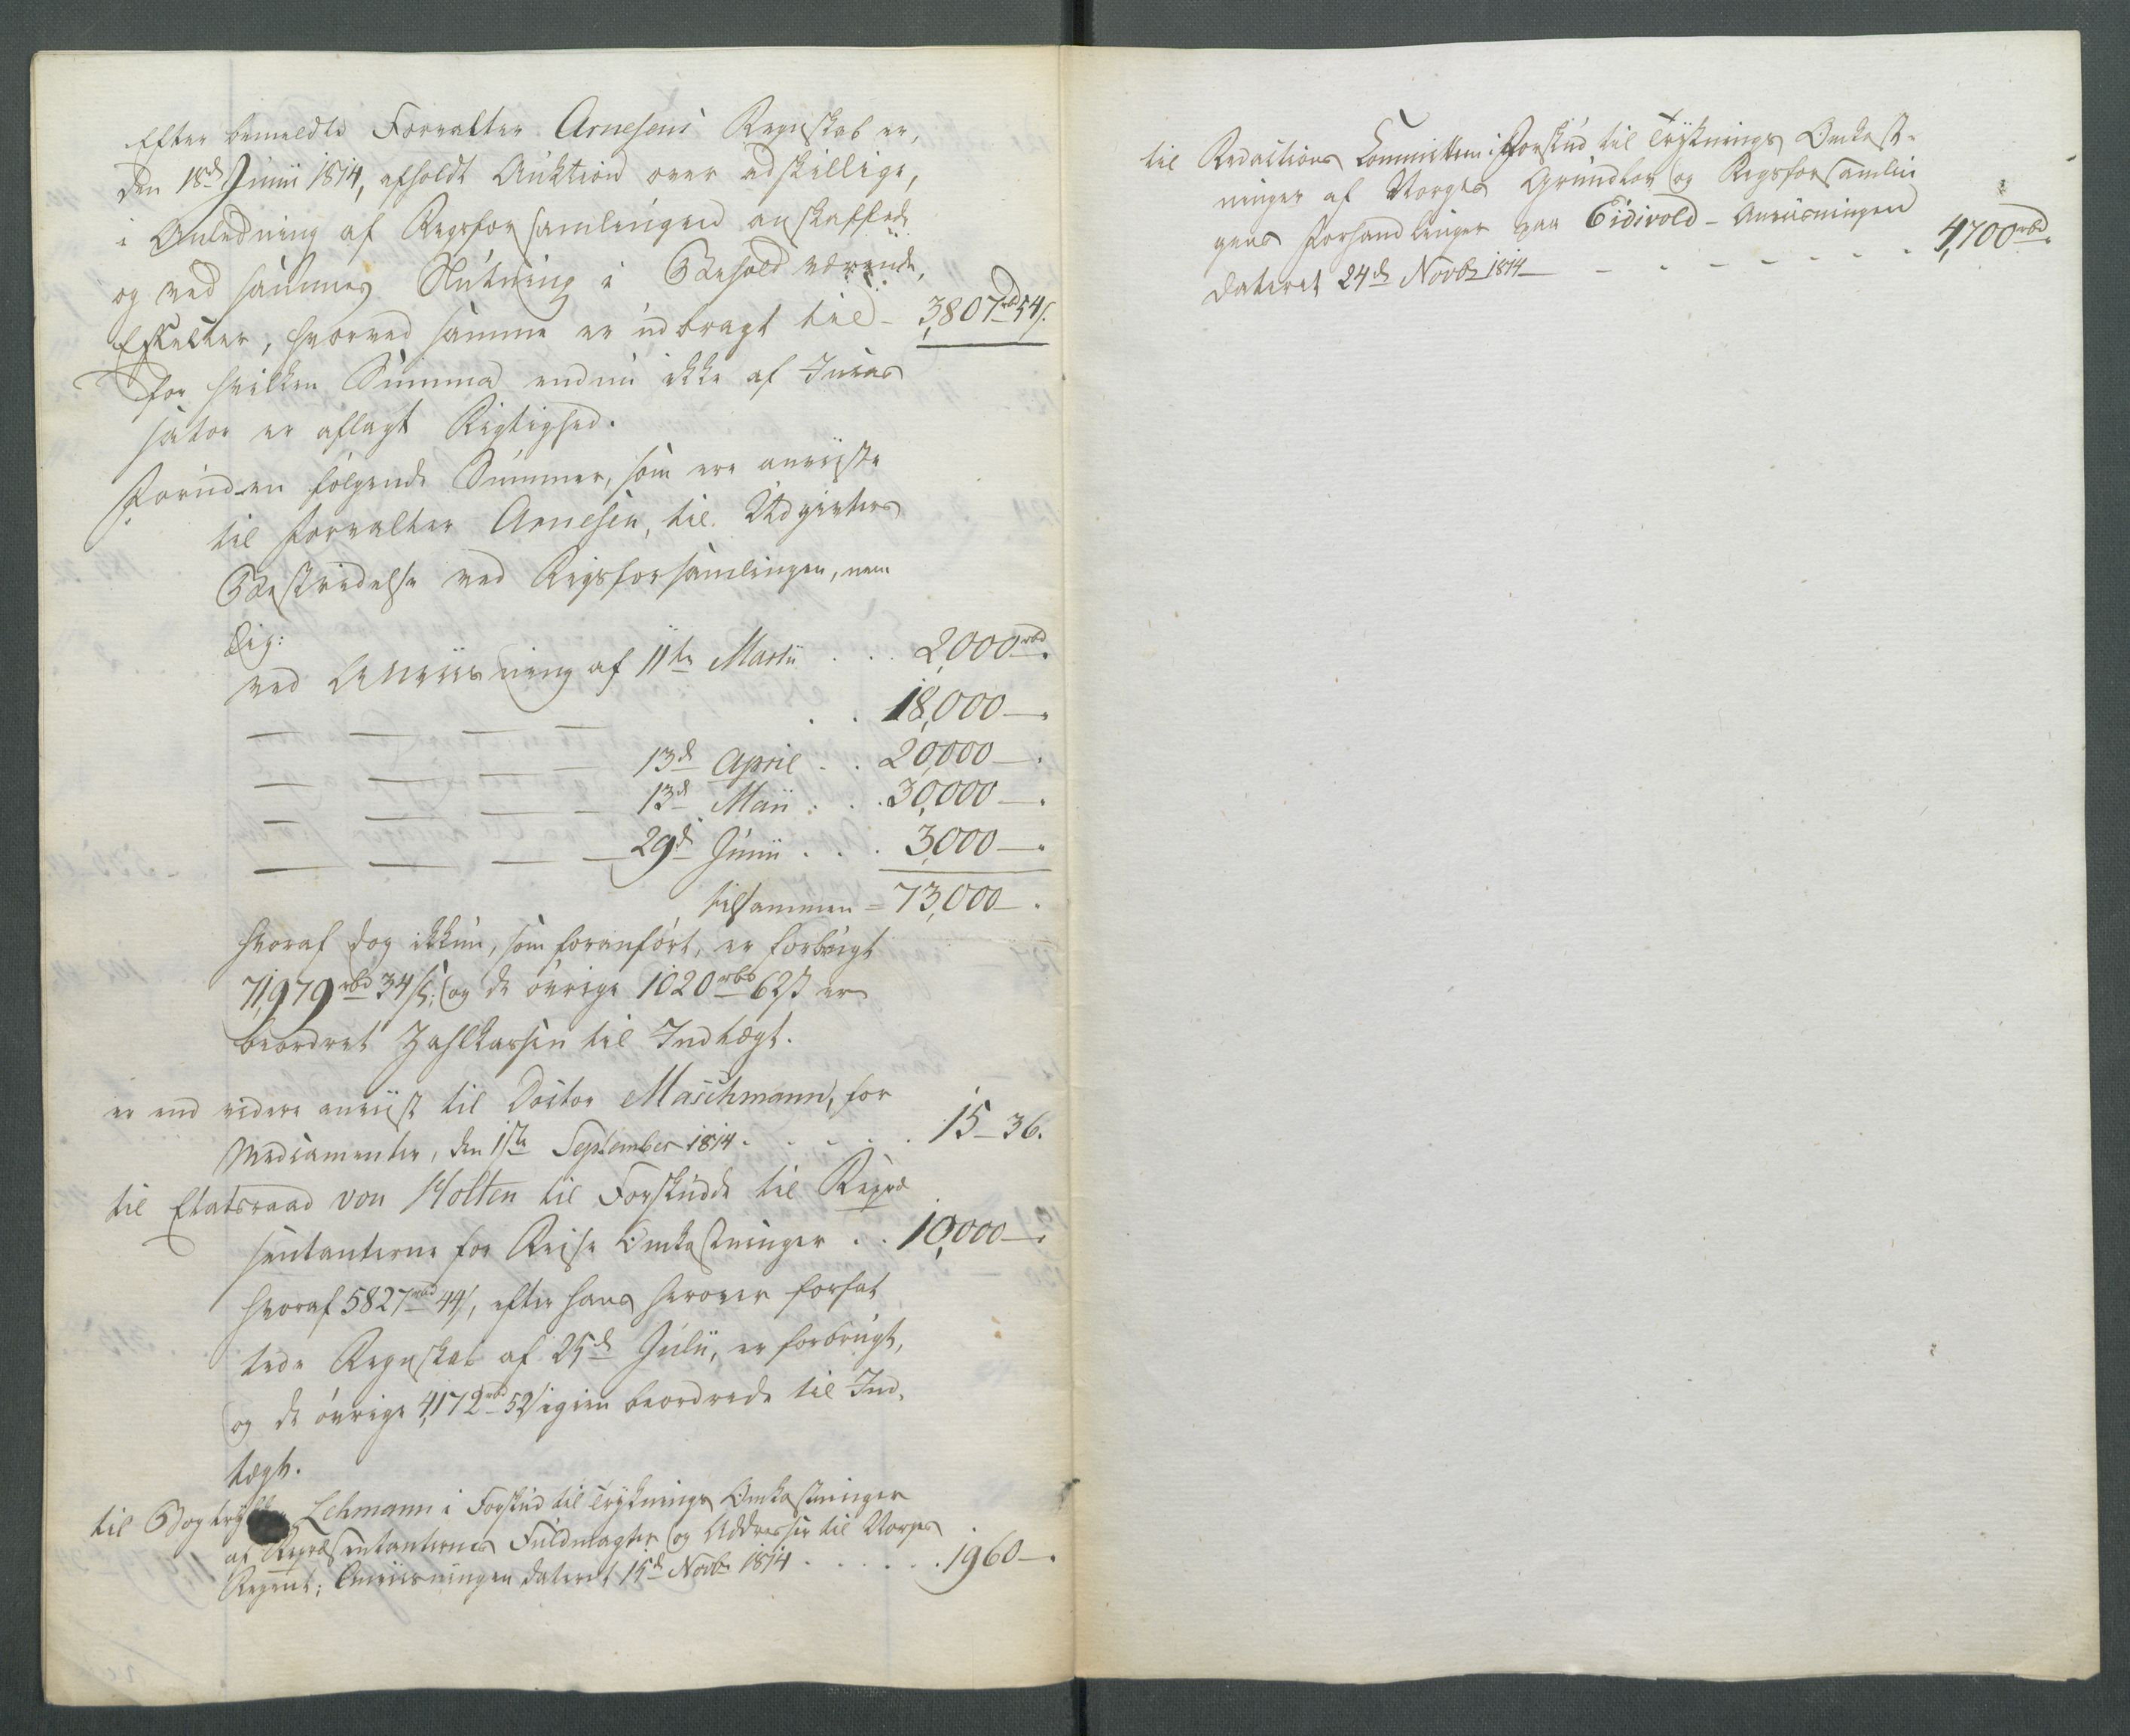 Efter bemeldte Forvalter Arnesens Regnskab er,
den 18de Junii 1814, afholdt Auktion over adskillige,
i Anledning af Rigsforsamlingen anskaffede
og ved sammes Slutning i Behold værende,
Effecter, hvorved samme er udbragt til - 3,807rbd 54s.
for hvilken Summa endnu ikke af Incas
sator er aflagt Rigtighed.
Foruden følgende Summer, som ere anviiste
til Forvalter Arnesen, til Udgivters
Bestridelse ved Rigsforsamlingen, nem
lig:
ved Anviisning af 11te Martii . . . 2,000rbd.
— — — — . . 18,000—.
— — — — 13de April . . 20,000—.
— — — — 13de Maii . . . 30,000—.
— — — — 29de Junii . . . 3,000—.
tilsammen = 73,000—.
hvoraf dog ikkun, som foranført, er forbrugt
71,979rbd 34s; og de øvrige 1020rbd 62s er
beordret Zahlkassen til Indtægt.
er end videre anviist til Doctor Maschmann, for
Medicamenter, den 1ste September 1814 . . . . . 15 - 36.
til Etatsraad von Holten til Forskudde til Repræ
sentanterne for Reise Omkostninger . . 10,000—.
hvoraf 5827rbd 44s, efter hans herover forfat
tede Regnskab af 25de Julii, er forbrugt,
og de øvrige 4,172rbd 52s igien beordrede til Ind-
tægt.
til Bogtrykker Lehmann i Forskud til Tryknings Omkostninger
af Repræsentanternes Fuldmagter og Addresser til Norges
Regent; Anviisningen dateret 15de Novbr 1814 . . . . . . 1960—.
til Redactions Committeen i Forskud til Tryknings Omkost-
ninger af Norges Grundlov og Rigsforsamlin
gens Forhandlinger paa Eidsvold - Anviisningen
dateret 24de Novbr 1814 — - - - - - - - 4,700rbd.